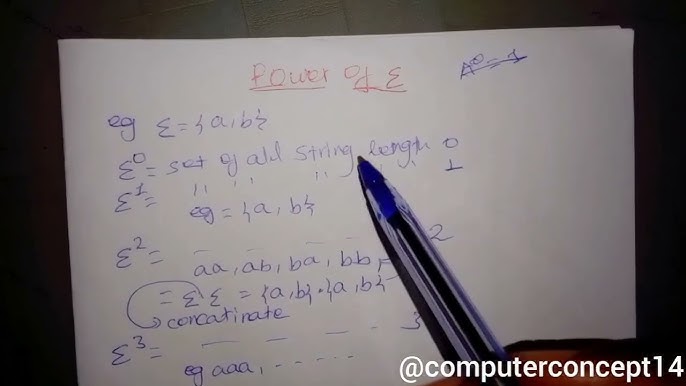 Power of Σ
A⁰ = 1
eg Σ = {a, b}
Σ⁰ = set of all string length 0
Σ¹ = ,, ,, ,, ,, ,, 1
eg = {a, b}
Σ² = — — — 2
aa, ab, ba, bb
= Σ Σ = {a, b} · {a, b}
concatinate
Σ³ = — — — - 3
eg aaa, - - - - - -
@computerconcept14